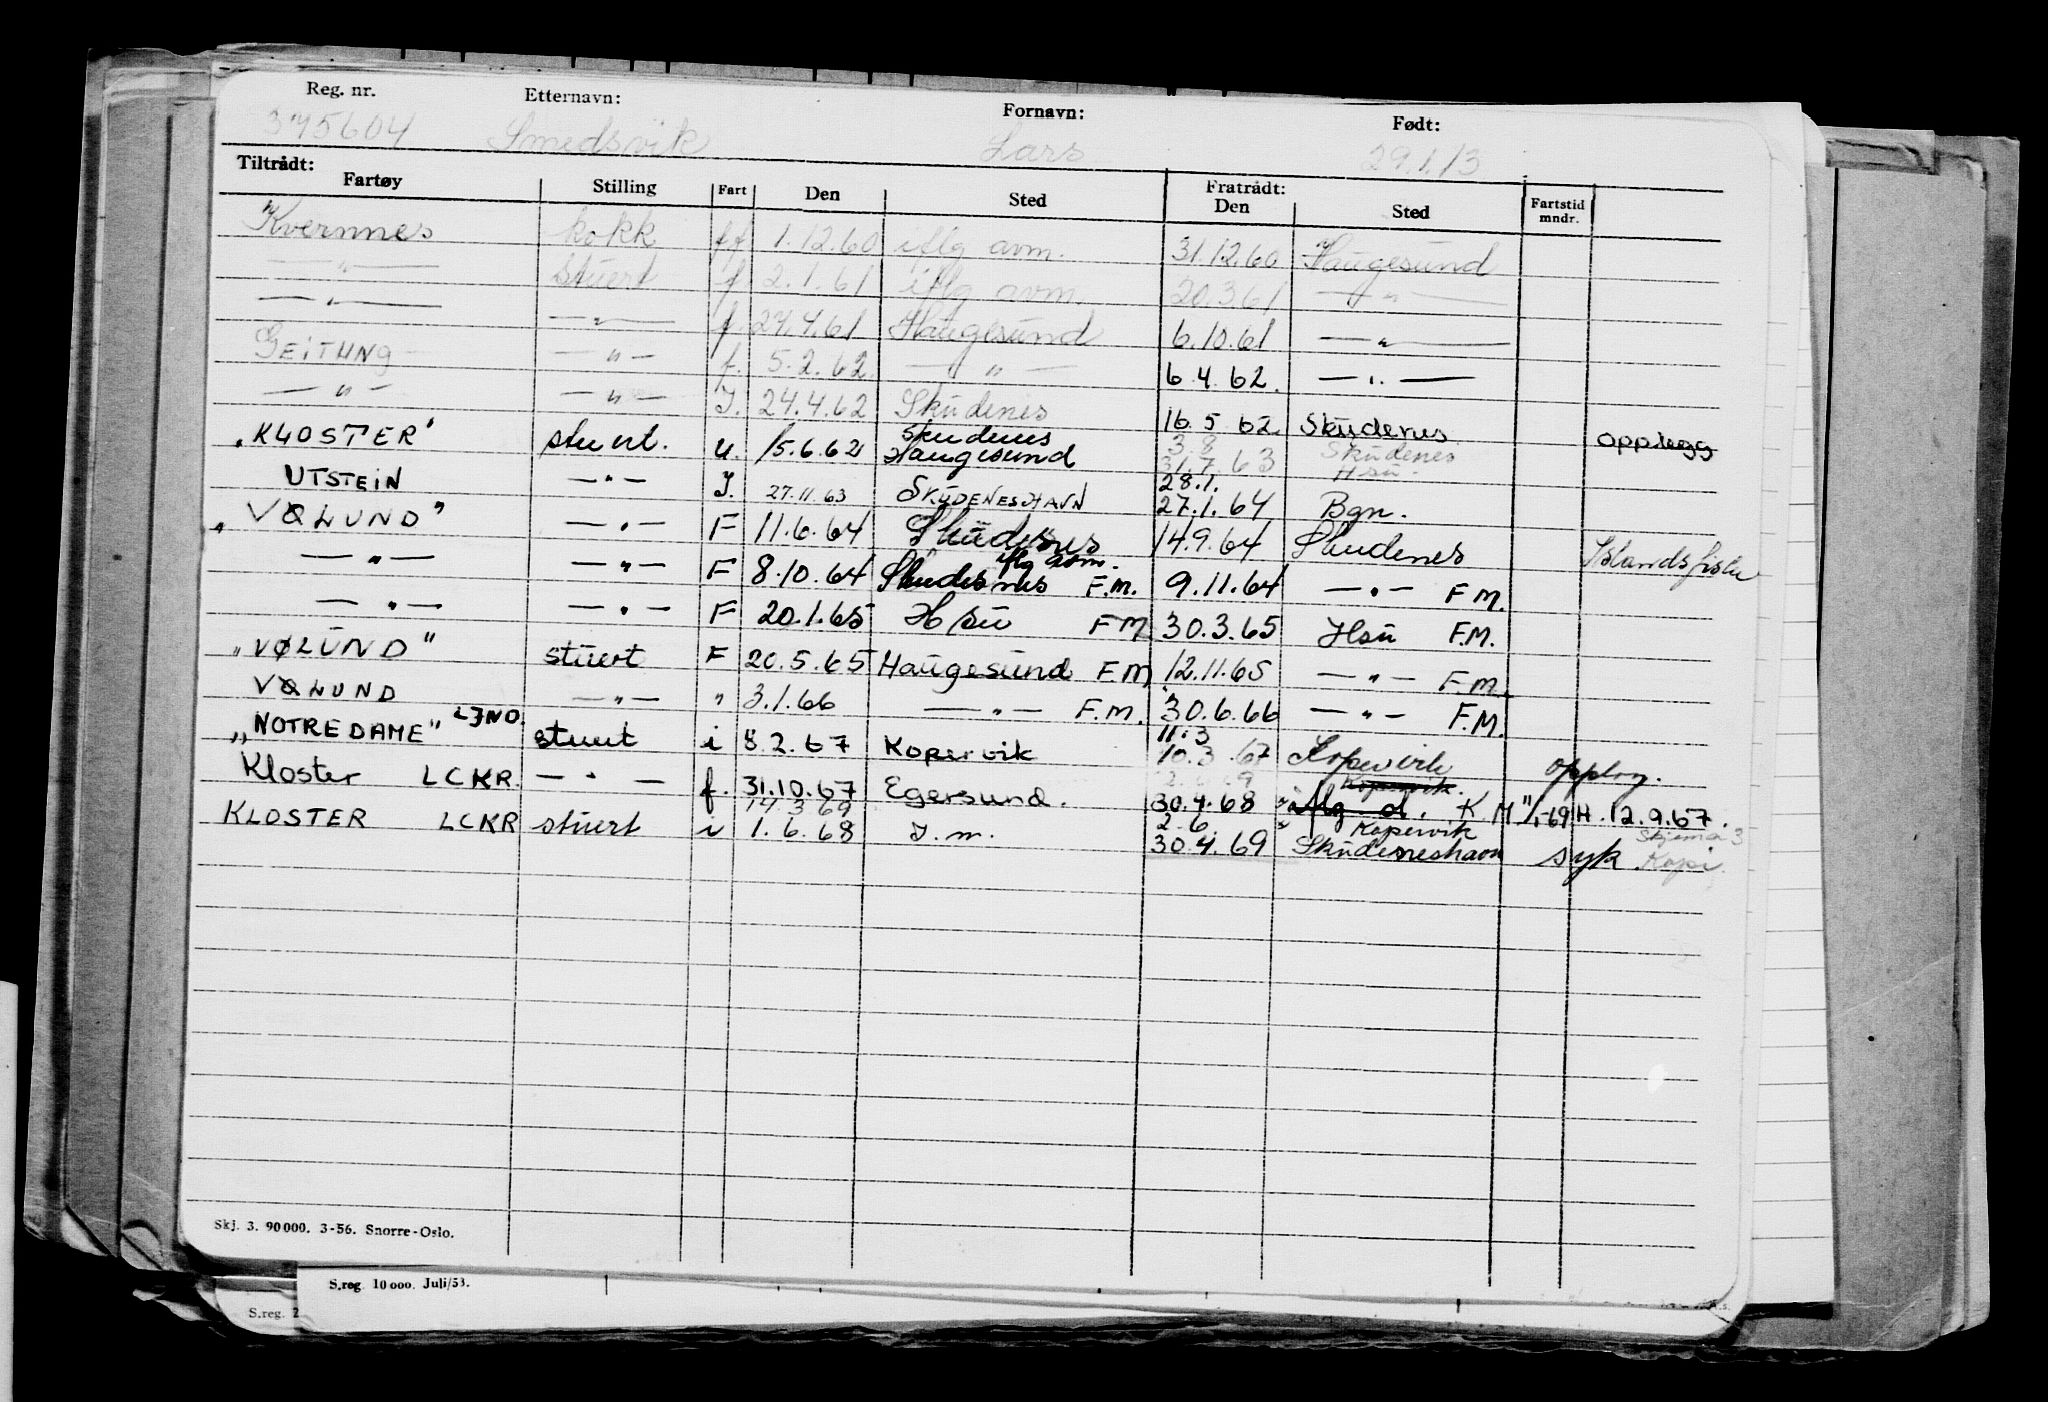 Reg. nr. Etternavn: Fornavn: Født:
375604 Smedsvik Lars 29.1.13
Tiltrådt: Fratrådt:
Fartøy Stilling Fart Den Sted Den Sted Fartstid mndr.
Kvernnes kokk ff 1.12.60 iflg avm. 31.12.60 Haugesund
— " — stuert f. 2.1.61 iflg avm. 20.3.61 — " —
— " — — " — f. 27.4.61 Haugesund 6.10.61 — " —
GEITUNG — " — f. 5.2.62 — " — 6.4.62. — " —
— " — — " — I. 24.4.62 Skudenes 16.5.62 Skudenes opplegg
"KLOSTER" stuert. u. 15.6.62 Skudenes Haugesund 3.8 31.7.63 Skudenes Hsu.
UTSTEIN — " — I. 27.11.63 SKUDENESHAVN 28.1. 27.1.64 Bgn.
"VØLUND" — " — F 11.6.64 Skudenes 14.9.64 Skudenes Islandsfiske
— " — — " — F 8.10.64 Skudesnes iflg avm. F.M. 9.11.64 — " — F.M.
— " — — " — F 20.1.65 Hsu F.M 30.3.65 Hsu F.M.
"VØLUND" stuert F 20.5.65 Haugesund F.M 12.11.65 — " — F.M.
VØLUND — " — " 3.1.66 — " — F.M. 30.6.66 — " — F.M.
"NOTRE DAME" LJNO. stuert i 8.2.67 Kopervik 11.3 10.3.67 Kopervik opplag.
Kloster LCKR. — " — f. 31.10.67 Egersund. 30.4.68 Kopervik. iflg d. K M "/1-69 H. 12.9.67.
KLOSTER LCKR stuert i 14.3.69 1.6.68 I.m. 2.6 30.4.69 Kopervik Skudeneshavn syk Skjema 3 Kopi
Skj. 3. 90000. 3-56. Snorre-Oslo.
S.reg. 10 000. Juli/53.
S.reg. 2